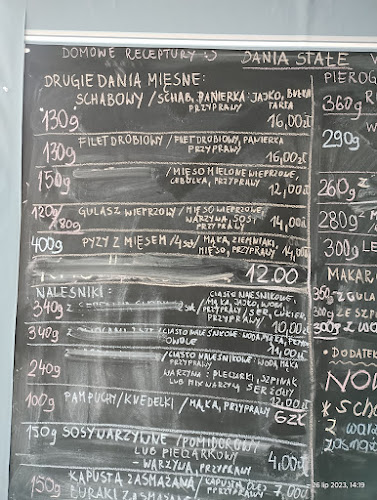 DOMOWE RECEPTURY :)
DANIA STAŁE
DRUGIE DANIA MIĘSNE:
SCHABOWY / SCHAB, PANIERKA: JAJKO, BUŁKA
TARTA
PRZYPRAWY
130g 16,00zł
FILET DROBIOWY / FILET DROBIOWY, PANIERKA
PRZYPRAWY
130g 16,00zł
150g / MIĘSO MIELONE WIEPRZOWE,
CEBULKA, PRZYPRAWY
12,00zł
120g/80g GULASZ WIEPRZOWY / MIĘSO WIEPRZOWE,
WARZYWA, SOS,
PRZYPRAWY 14,00zł
400g PYZY Z MIĘSEM / 4szt / MĄKA, ZIEMNIAKI,
MIĘSO, PRZYPRAWY 14,00zł
12.00
NALEŚNIKI:
CIASTO NALEŚNIKOWE:
MĄKA, JAJKO, WODA,
340g 2szt PRZYPRAWY / SER, CUKIER,
PRZYPRAWY 10,00zł
340g / CIASTO NALEŚNIKOWE: WODA, MĄKA,
OWOCE
11,00zł
240g / CIASTO NALEŚNIKOWE: WODA, MĄKA
PRZYPRAWY
WARZYWA: PIECZARKI, SZPINAK
LUB MIX WARZYW SEROWY
12,00zł
100g PAMPUCHY / KNEDELKI / MĄKA, PRZYPRAWY
6zł
150g SOSY WARZYWNE / POMIDOROWY
LUB PIECZARKOWY
- WARZYWA, PRZYPRAWY 4,00zł
150g KAPUSTA ZASMAŻANA / KAPUSTA, OLEJ
PRZYPRAWY 7,00zł
BURAKI ZASMAŻANE
PIEROG
360g
290g
260g
280g
300g
MAKAR
350g
300g
• DODATEK
NOW
* scha
2
26 lip 2023, 14:19